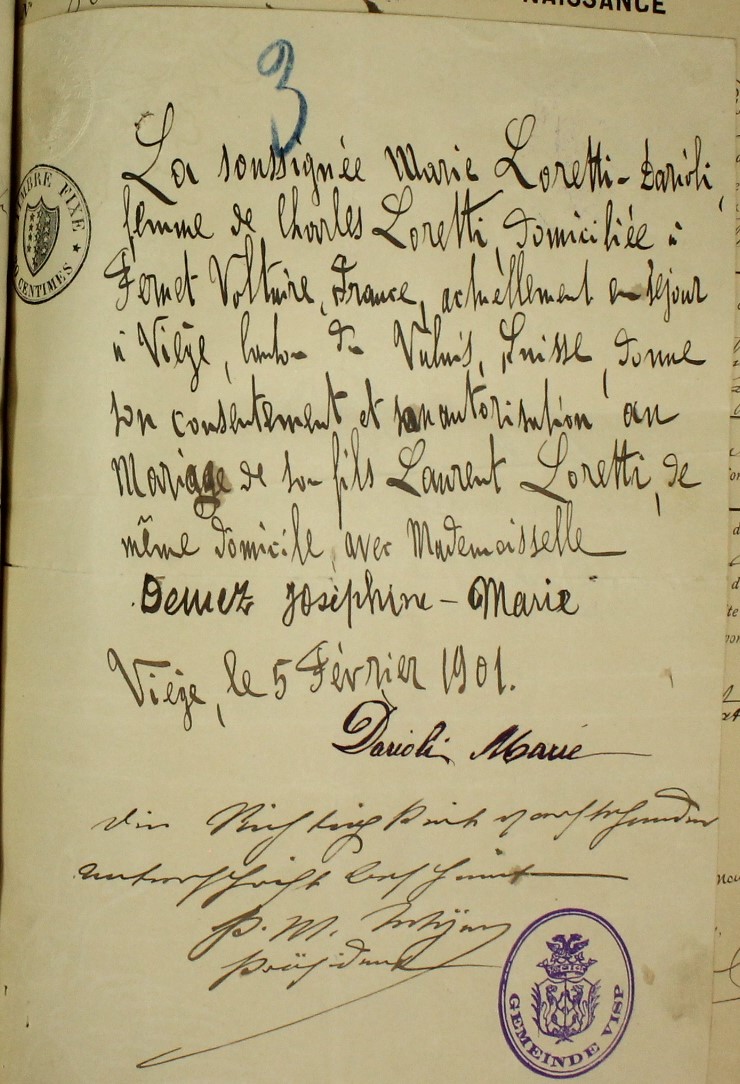 NAISSANCE
3
TIMBRE FIXE
CENTIMES
La soussignée Marie Loretti-Darioli,
femme de Charles Loretti, domiciliée à
Fernet Voltaire, France, actuellement en séjour
à Viège, canton du Valais, Suisse, donne
son consentement et son autorisation au
Mariage de son fils Laurent Loretti, de
même domicile, avec Mademoisselle
Demez Joséphine-Marie
Viége, le 5 Février 1901.
Darioli Marie
Die Richtigkeit vorstehender
Unterschrift bescheint
P. M.
Präsident
GEMEINDE VISP